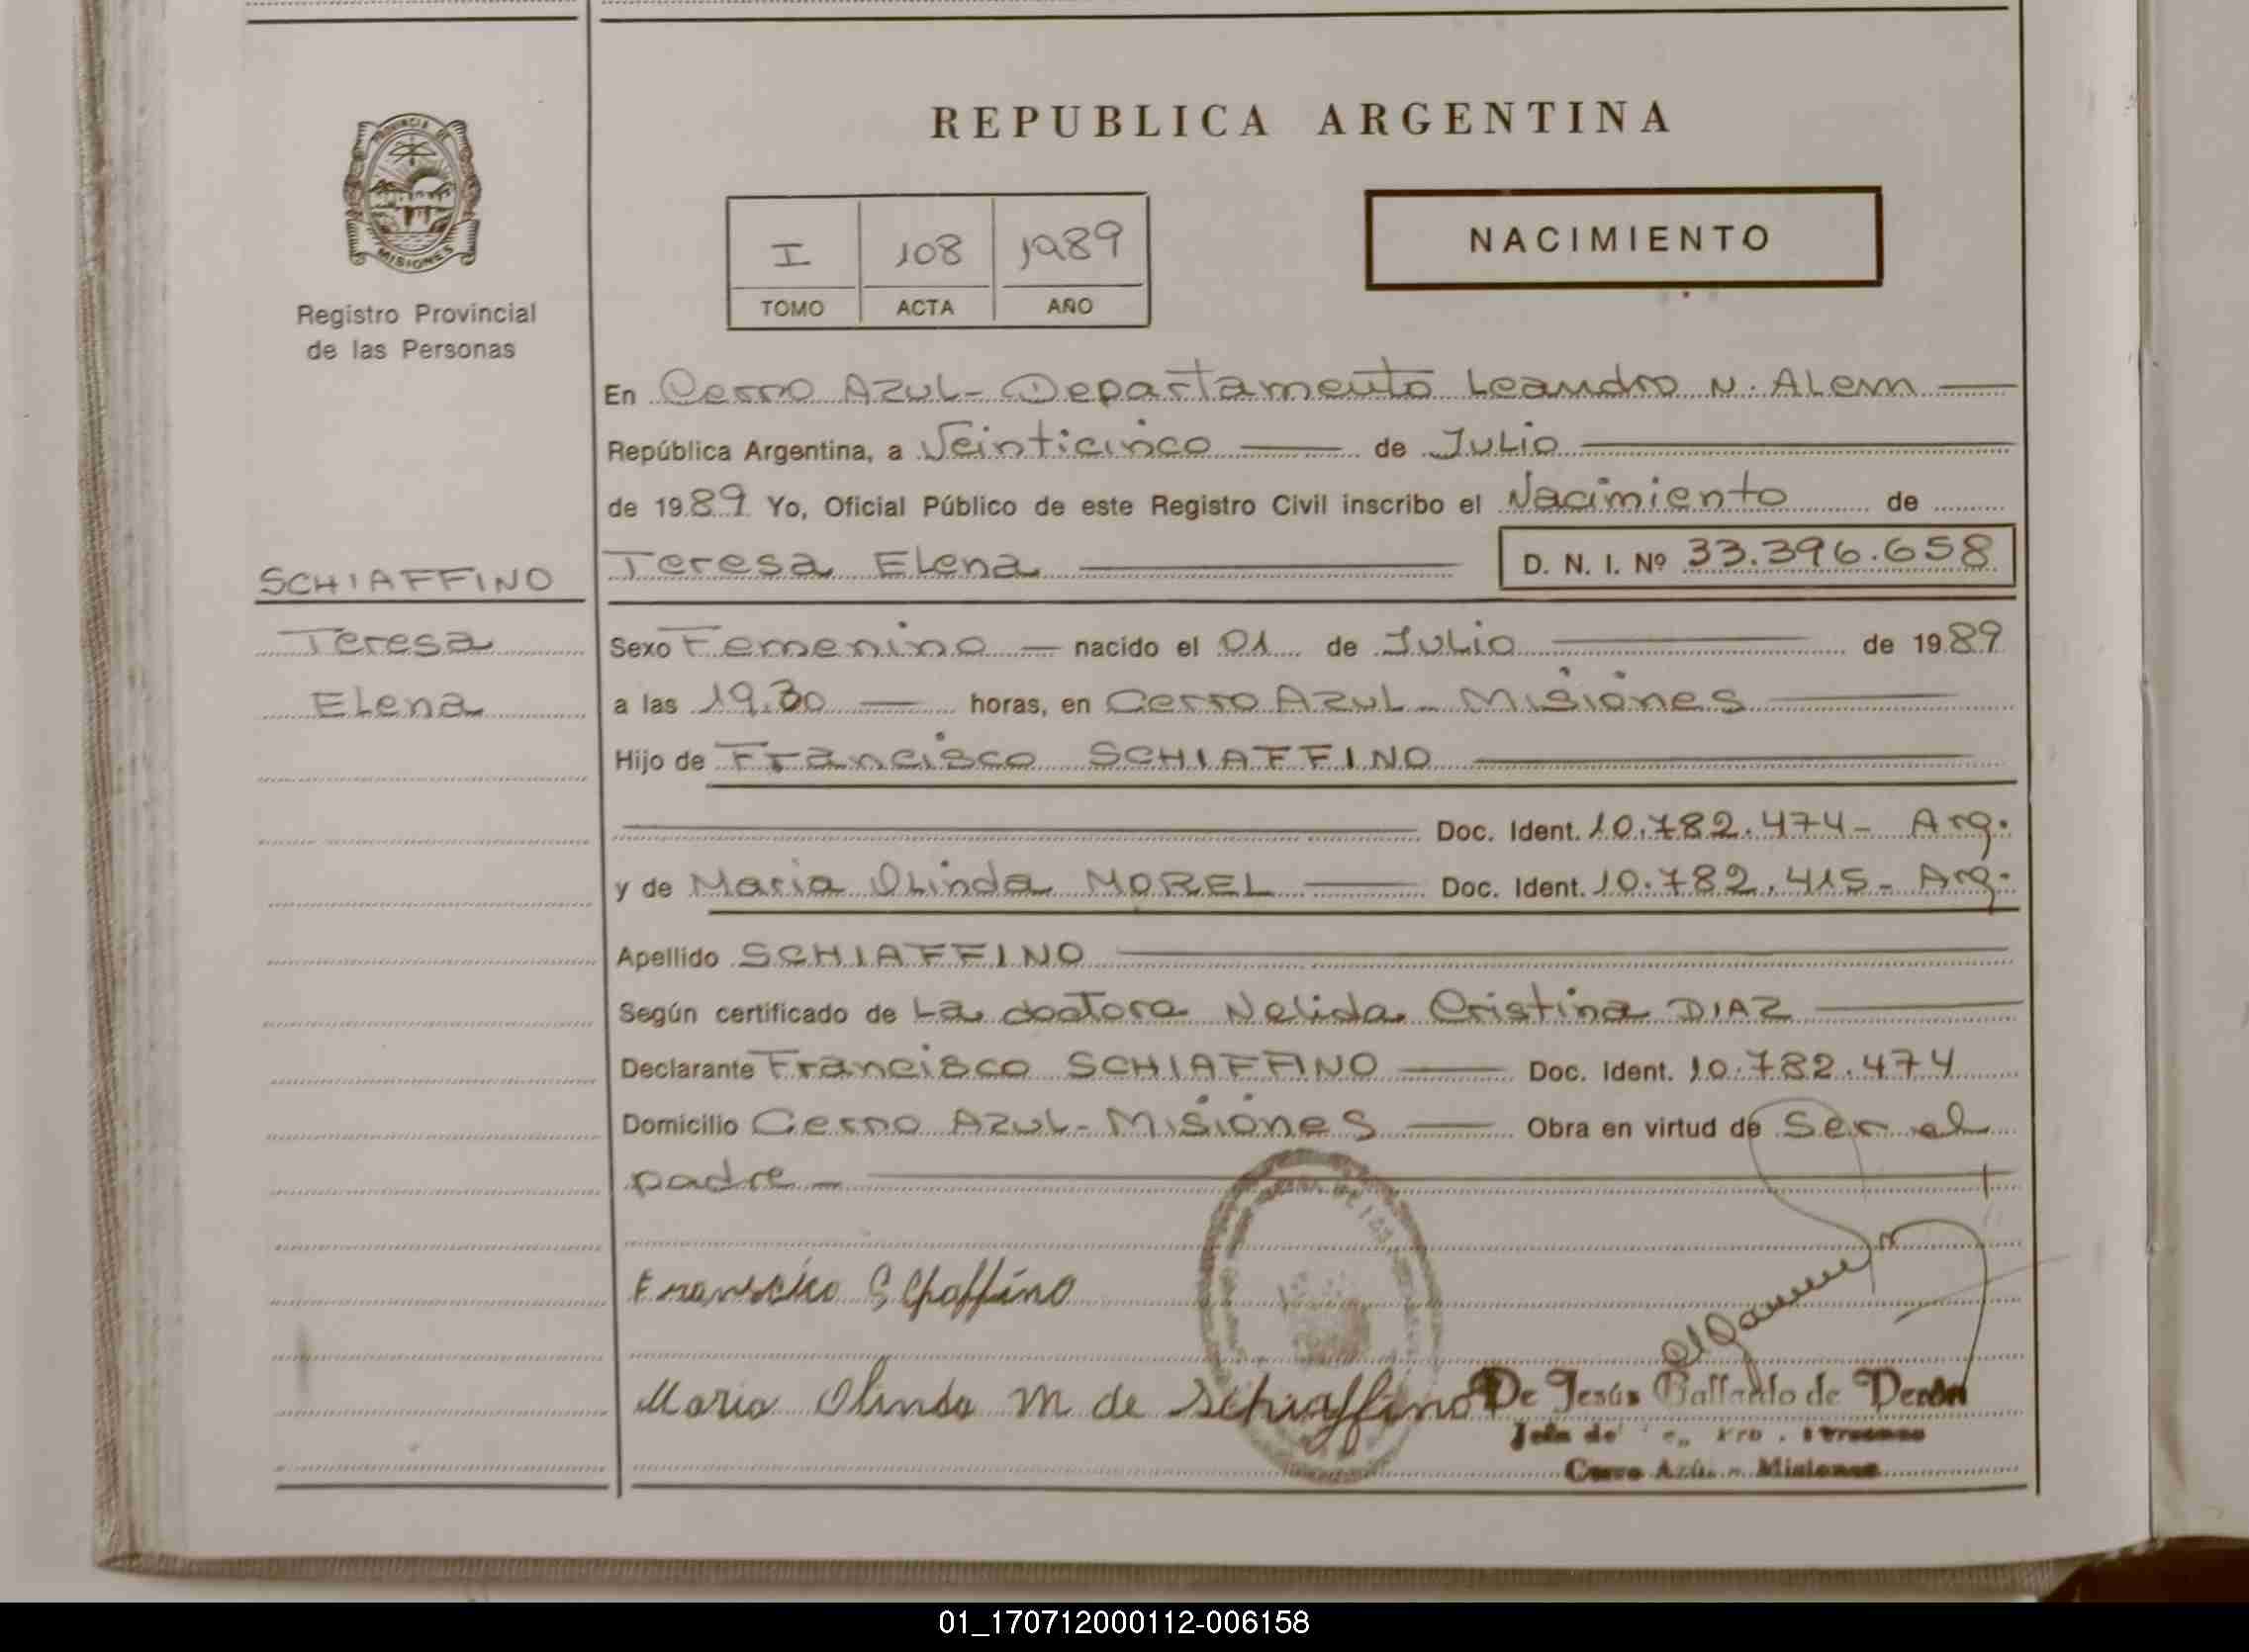 REPUBLICA ARGENTINA
PROVINCIA DE
MISIONES
Registro Provincial
de las Personas
I 108 1989
TOMO ACTA AÑO
NACIMIENTO
En Cerro Azul - Departamento Leandro N. Alem
República Argentina, a Veinticinco de Julio
de 1989 Yo, Oficial Público de este Registro Civil inscribo el Nacimiento de
SCHIAFFINO
Teresa
Elena
Teresa Elena D. N. I. Nº 33.396.658
Sexo Femenino nacido el 01 de Julio de 1989
a las 19.30 horas, en Cerro Azul - Misiones
Hijo de Francisco SCHIAFFINO
Doc. Ident. 10.782.474 - Arg.
y de Maria Olinda MOREL Doc. Ident. 10.782.415 - Arg.
Apellido SCHIAFFINO
Según certificado de La doctora Nelida Cristina DIAZ
Declarante Francisco SCHIAFFINO Doc. Ident. 10.782.474
Domicilio Cerro Azul - Misiones Obra en virtud de Ser el
padre -
Maria Olinda M de Schiaffino
De Jesús Gallardo de Perón
Cerro Azul - Misiones
01_170712000112-006158